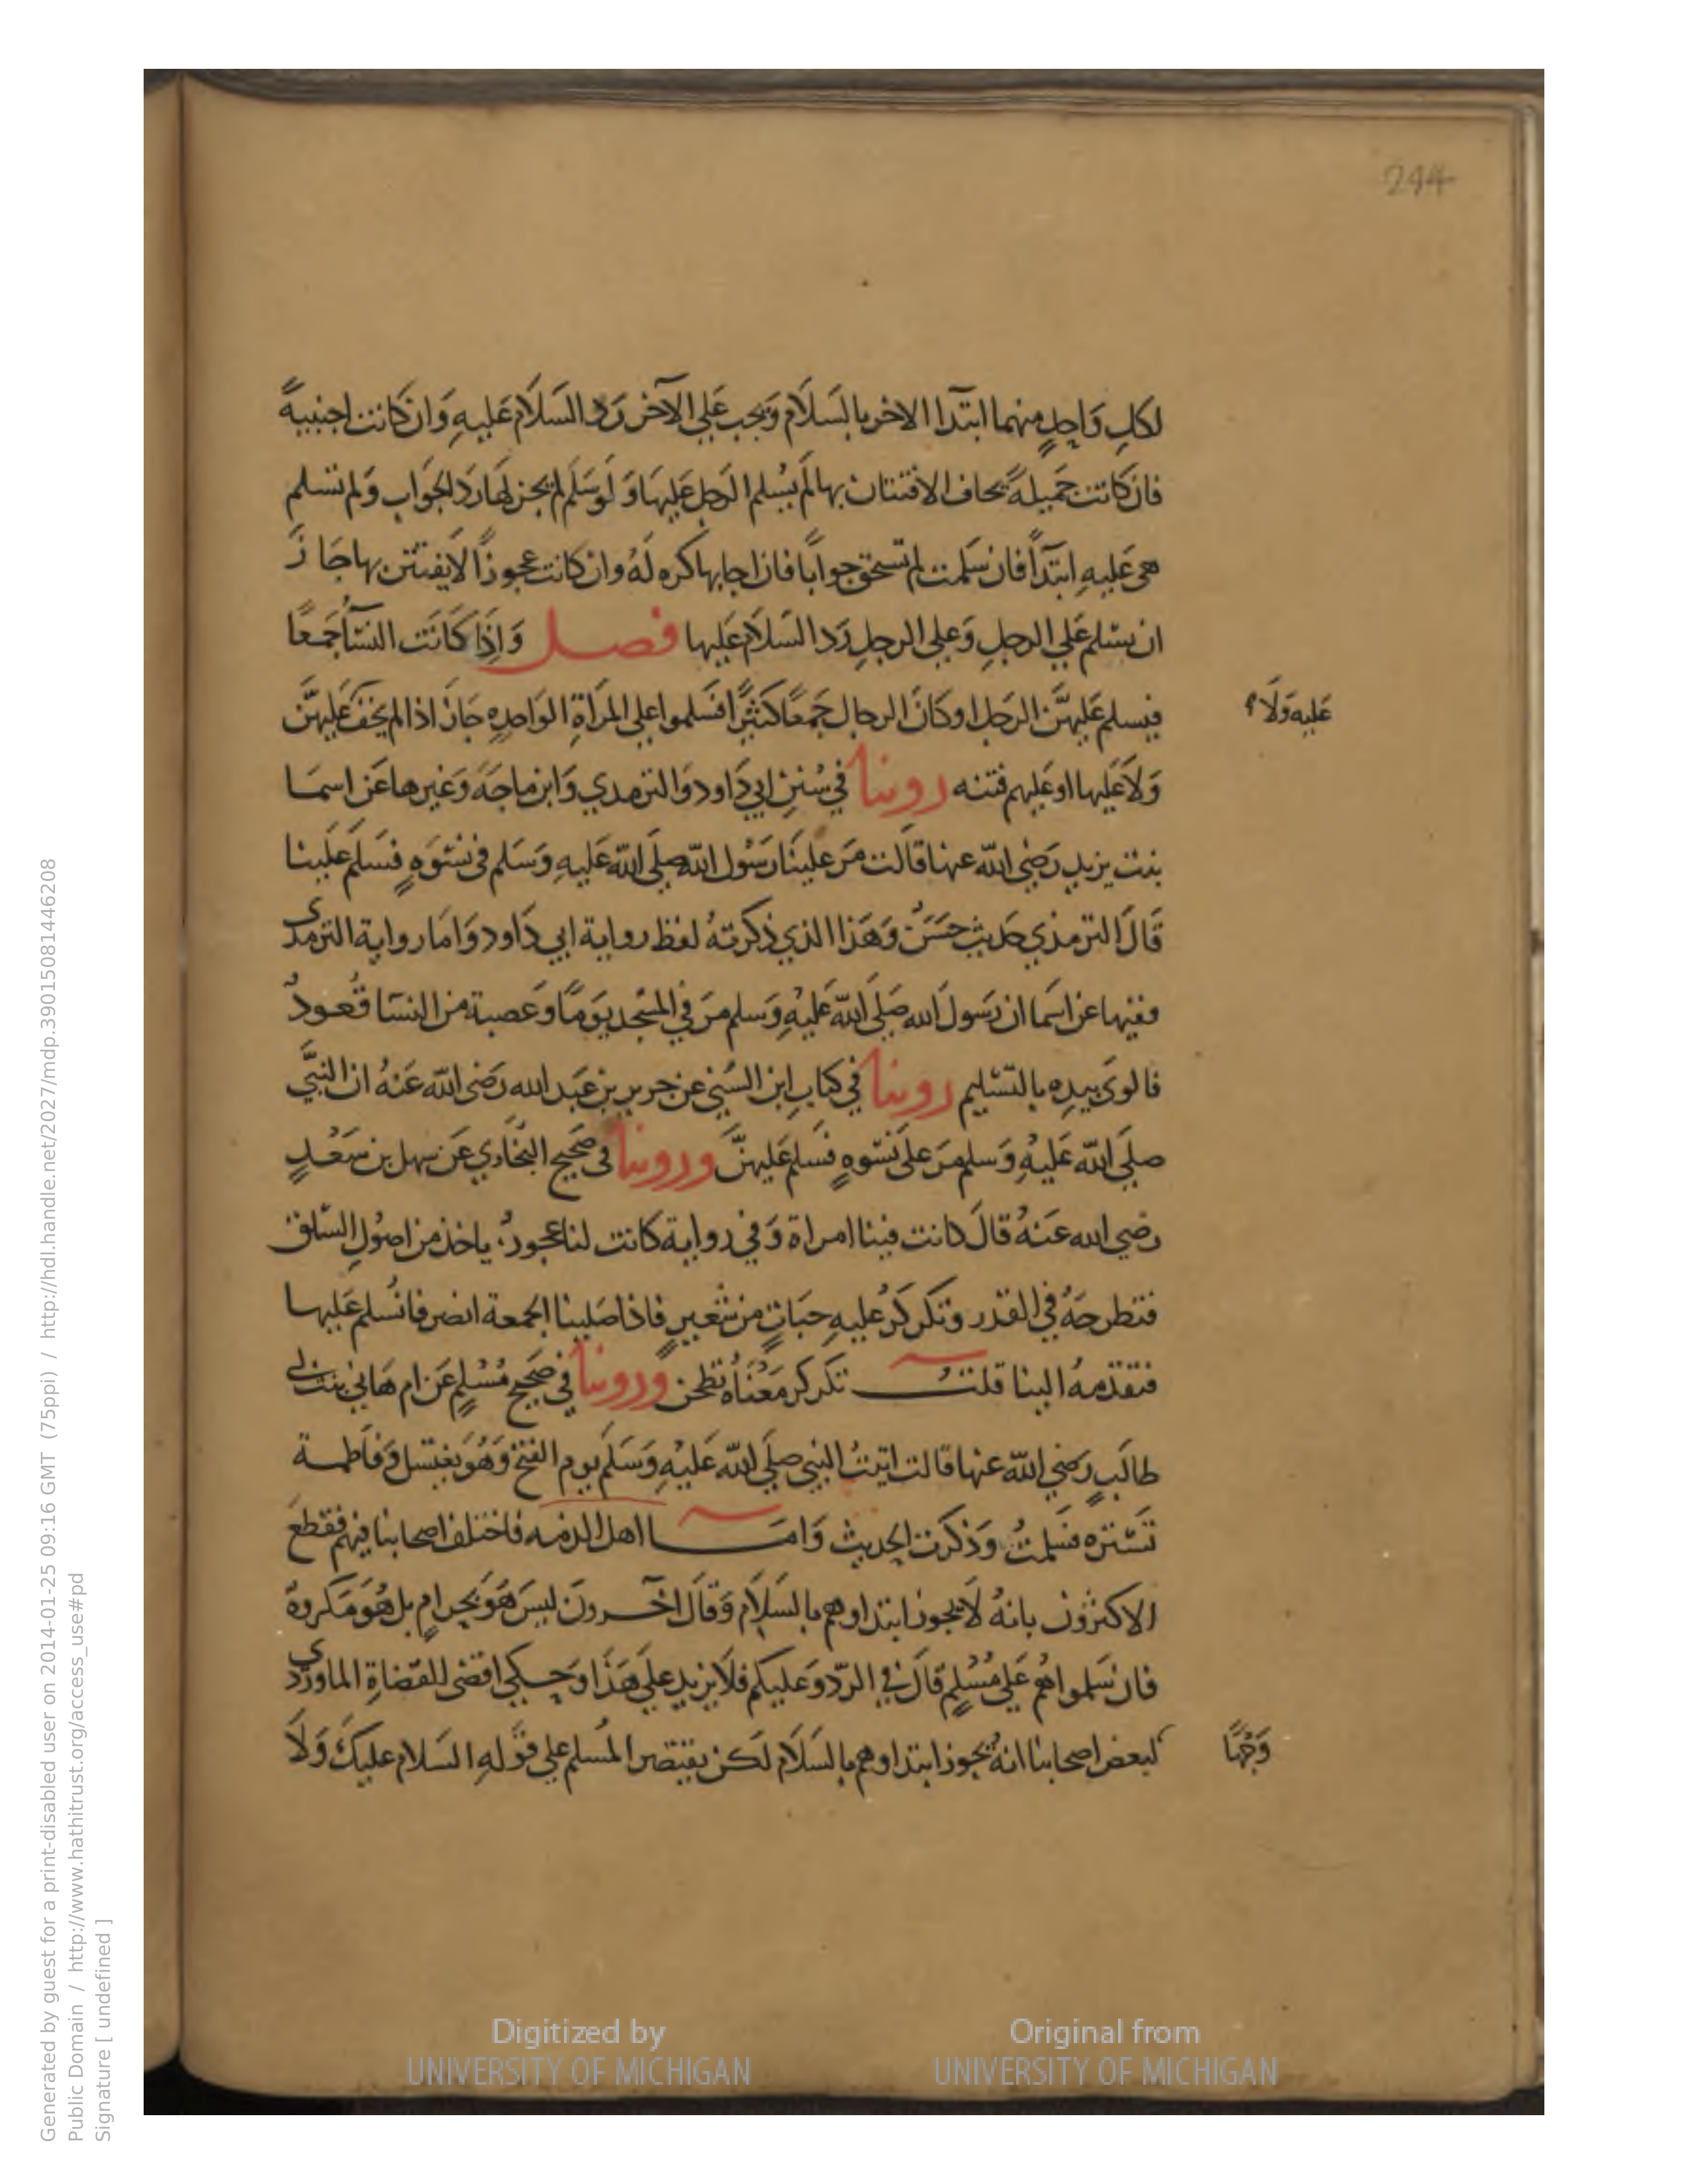 244
لكلِ وَاحِدٍ منهما ابتدَآ الاخر بالسَلَام وَيجب عَلي الآخر رَد السَلَام عَليهِ وَان كَانت اجنبيةً
فان كانت جَميلةً يخاف الافتتان بها لَم يُسْلم الرَجل عَليهَا وَ لَوسَلَم لم يجز لهَا رَد الجَواب وَلم تسَلم
هي عَليهِ ابتَدآً فان سَلمت لم تستحق جوابًا فان اجابها كره لَهُ وان كانت عجوزًا لَا يفتتن بها جَا زَ
ان يسَلم عَلي الرجلِ وَعلي الرجلِ رَد السَلَام عَليها فصل وَاِذَا كَانَت النسَآ جَمعًا
فيسلم عَليهنَّ الرَجل اوكَانَ الرجال جَمعًا كثيًرا فسَلموا علي المرَاةِ الوَاحِدِه جَازَ اذا لم يخفَ عَليهنَّ
عَليهِ وَلَا
وَلَا عَليها اوعَليهم فتنه روينا في سُنَنِ ابي دَاود وَالترمدي وَابن ماجَهَ وَغيرها عَن اسمَا
بنت يزيدٍ رَضيَ الله عنها قالَت مَر عَلينَا رَسُول الله صلي الله عَليهِ وَسَلم في نسْوَهٍ فسَلم عَلَينا
قَالَ الترمذي حَديث حَسَن وَهَذا الذي ذكرتهُ لفظ رواية ابي دَاود وَامَا رواية الترمدى
ففيها عن اسَما ان رَسُولَ الله صَلَي الله عَليْهِ وَسلم مرَ في المسْجد يَومًا وَعصبة من النسَا قُعودٌ
فالوى بيدِه بالتسْليم روينا في كتابِ ابن السُني عن جرير بن عَبد الله رَضى الله عَنهُ ان النبيَّ
صلي الله عَليْهِ وَسلم مرَ علَى نسْوهٍ فسَلم عَليهنَّ وروينا في صَحيح البخاري عَن سهل بن سَعْدٍ
رضي الله عَنهُ قالَ كانت فينا امراة وَفي رواية كانت لنا عجوزٌ ياخذ من اصُولِ السَلق
فتطرحَهُ في القدر وتكركرُ عليهِ حبَاتٍ من شعيرٍ فاذا صَلينا الجمعة انصرفنا نُسلم عَليها
فتقدمهُ الينا قلت تكركر مَعْناهُ تطحن وروينا في صَحيح مُسْلِمٍ عَن ام هَاني بنت ابي
طالبٍ رضي الله عنها قالت اتيتُ النبي صلَي الله عَليْهِ وَسَلَم يوم الفتح وَهُوَ يغتسل وَفاَطمة
تَسْتره فسَلمتُ وَذكرَت الحديث وَامَا اهل الذمه فاختلف اصحابنا فيهم فقطعَ
الاكثرُون بانهُ لَا يجوز ابتداوهم بالسَلَام وَقالَ آخرونَ ليسَ هُوَ بحرامٍ بل هُوَ مَكروهٌ
فان سَلموا هُم عَلي مُسْلِم قالَ في الردّ وَعَليكم فَلا يزيد علَي هَذَا وَحكى اقضى القضاةِ الماوردى
وَجهًا
لبعض اصحابنا انهُ يجوز ابتداوهم بالسَلَام لَكن يقتصر المُسلم علي قوَلهِ السَلام عليكَ وَلَا
Generated by guest for a print-disabled user on 2014-01-25 09:16 GMT (75ppi) / http://hdl.handle.net/2027/mdp.39015081446208
Public Domain / http://www.hathitrust.org/access_use#pd
Signature [ undefined ]
Digitized by
UNIVERSITY OF MICHIGAN
Original from
UNIVERSITY OF MICHIGAN